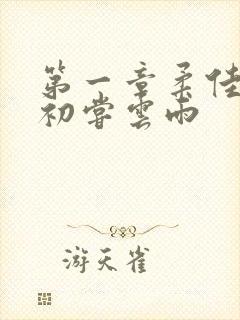 第一章柔佳
初尝雲雨
游天雀